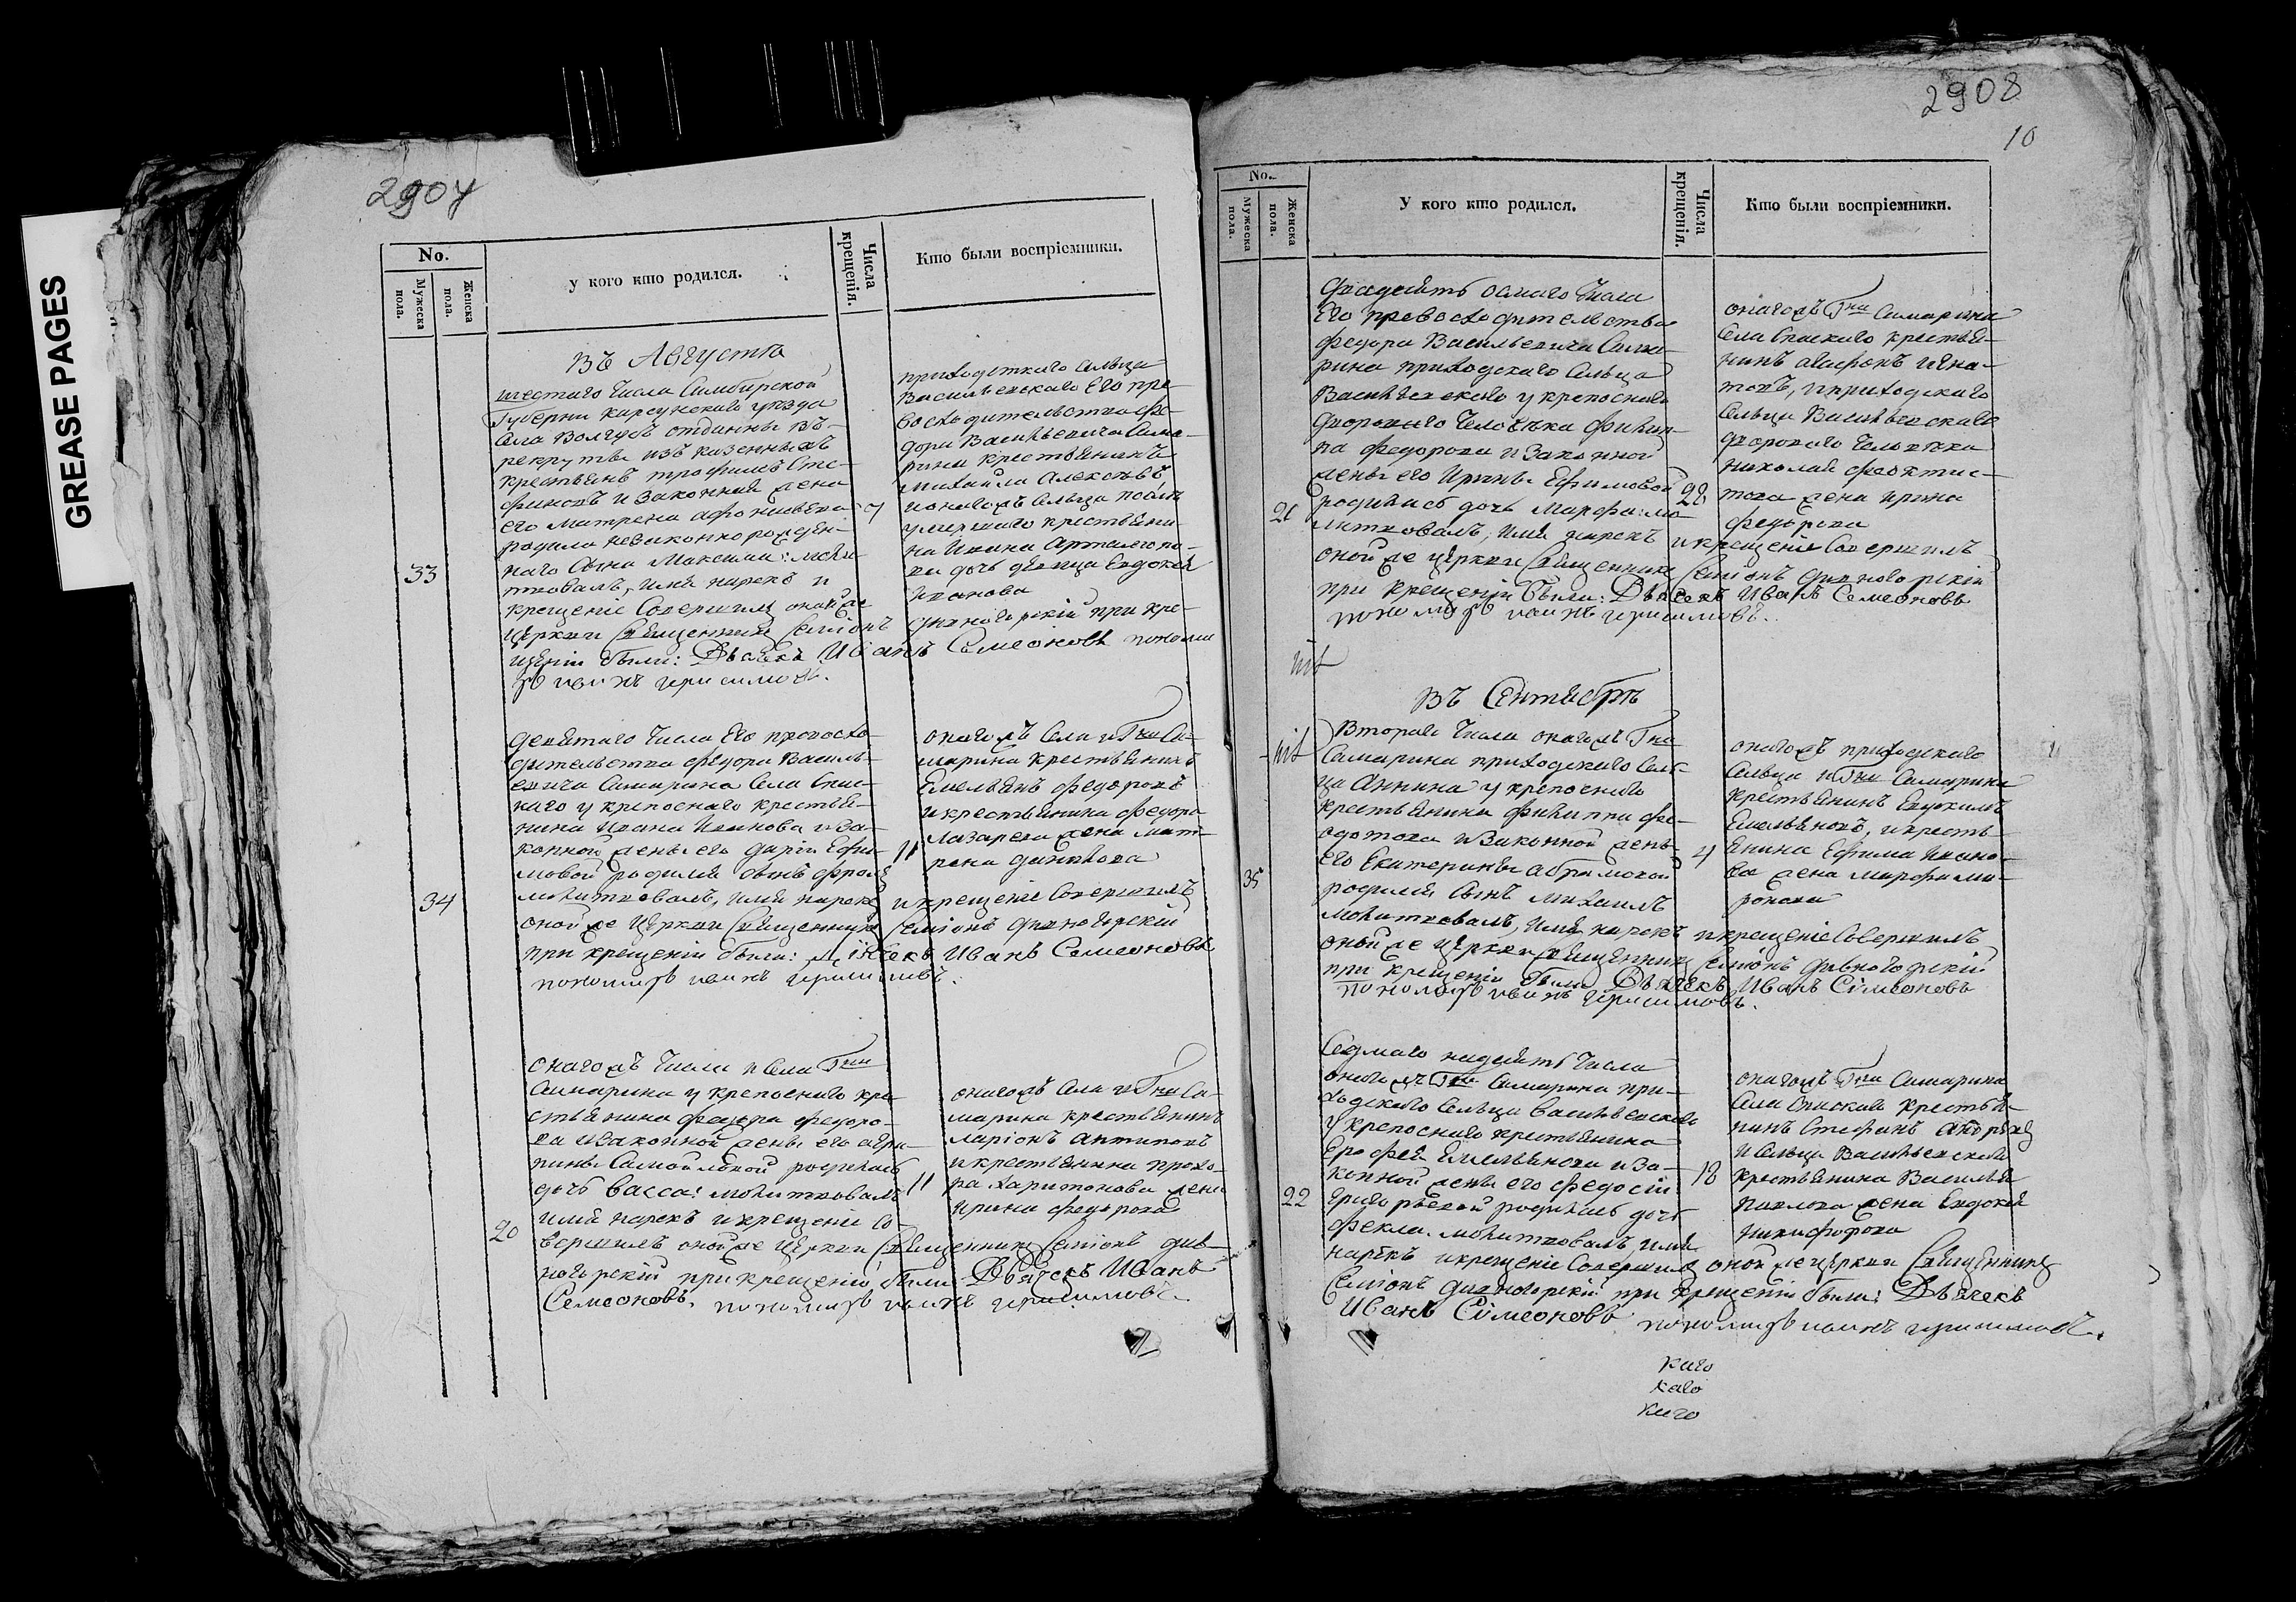 GREASE PAGES
2907
No.
Мужеска пола.
Женска пола.
У кого кто родился.
Числа крещенія.
Кто были воспріемники.
Въ Августѣ
шестаго числа Симбирской
Губерни Карсунскаго уѣзда
рекруты изъ казенныхъ
крестьянъ трофимъ Сте-
фановъ и законная жена
его матрена
родила незаконнорожден-
наго сына Максима: моли-
твовалъ, имя нарекъ и
крещеніе совершилъ оной же
церкви священникъ Семіонъ
щеніи были: Дьячекъ Иванъ Семеоновъ пономарь
33
7
приходскаго сельца
Васильевскаго Его пре-
восходительства Фе-
дора Васильевича Сама-
рина крестьянинъ
Михайла Алексѣевъ
и онагожъ сельца
умершаго крестьяни-
на Ивана
ва дочь девица Евдокея
Иванова
дивногорскій при кре-
девятаго числа Его превосхо-
дительства Федора Василь-
евича Самарина села Спас-
каго у крепоснаго крестья-
нина Ивана Иванова и за-
конной жены его дарьи Ефи-
мовой родился сынъ фролъ
молитвовалъ, имя нарекъ и крещеніе совершилъ
оной же церкви священникъ Семіонъ дивногорскій
при крещеніи были: Дьячекъ Иванъ Семеоновъ
34
11
онагожъ села и Гна Са-
марина крестьянинъ
Емельянъ федоровъ
и крестьянина федора
Лазарева жена мат-
рена данилова
онагожъ числа и села Гна
Самарина у крепоснаго кре-
стьянина федора федоро-
ва и законной жены его
Самойловой родилась
дочь васса: молитвовалъ
имя нарекъ и крещеніе со-
вершилъ оной же церкви священникъ Семіонъ див-
ногорскій при крещеніи были Дьячекъ Иванъ
Семеоновъ,
20
11
онагожъ села и Гна Са-
марина крестьянинъ
ларіонъ антиповъ
и крестьянина прохо-
ра харитонова жена
ирина федорова
2908
10
No.
Мужеска пола.
Женска пола.
У кого кто родился.
Числа крещенія.
Кто были воспріемники.
двадцать осмаго числа
Его превосходительства
федора Васильевича Сама-
рина приходскаго сельца
Васильевскаго у крепоснаго
двороваго человѣка филип-
па федорова и законной
жены его Ирины Ефимовой
родилась дочь марфа: мо-
литвовалъ, имя нарекъ и крещеніе совершилъ
оной же церкви священникъ Семіонъ дивногорскій
при крещеніи были: Дьячекъ Иванъ Семеоновъ
21
28
онагожъ Гна Самарина
села Спаскаго крестья-
нинъ
и приходскаго
сельца Васильевскаго
двороваго человѣка
николая феоктис-
това жена ирина
федорова
Въ Сентябрѣ
Втораго числа онагожъ Гна
Самарина приходскаго сель-
ца Аннина у крепоснаго
крестьянина филиппа фе-
дотова и законной жены
его Екатерины абрамовой
родился сынъ михаилъ
молитвовалъ, имя нарекъ и крещеніе совершилъ
оной же церкви священникъ Семіонъ дивногорскій
при крещеніи были Дьячекъ Иванъ Симеоновъ
35
4
онагожъ приходскаго
сельца и Гна Самарина
крестьянинъ Евдокимъ
Емельяновъ, и кресть-
янина Ефима Ивано-
ва жена марфа ми-
ронова
Седмаго надцать числа
онагожъ Гна Самарина при-
ходскаго сельца васильевскаго
у крепоснаго крестьянина
Ерофея Емельянова и за-
конной жены его федосіи
Григорьевой родилась дочь
фекла. молитвовалъ, имя
нарекъ и крещеніе совершилъ оной же церкви священникъ
Семіонъ дивногорскій при крещеніи были: Дьячекъ
Иванъ Симеоновъ
22
18
онагожъ Гна Самарина
села Спаскаго крестья-
нинъ Стефанъ андреевъ
и сельца Васильевскаго
крестьянина Василья
павлова жена Евдокея
никифорова
каго
каго
каго